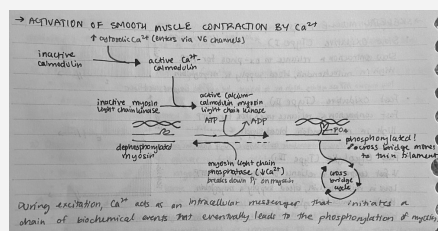 → ACTIVATION OF SMOOTH MUSCLE CONTRACTION BY Ca²⁺
↑ cytosolic Ca²⁺ (enters via VG channels)
inactive
calmodulin
active Ca²⁺-
calmodulin
inactive myosin
light chain kinase
active calcium-
calmodulin myosin
light chain kinase
ATP
ADP
dephosphorylated
myosin
myosin light chain
phosphatase (↓Ca²⁺)
breaks down Pi on myosin
PO₄
phosphorylated!
cross bridge moves
to thin filament
cross
bridge
cycle
During excitation, Ca²⁺ acts as an intracellular messenger that initiates a
chain of biochemical events that eventually leads to the phosphorylation of myosin.